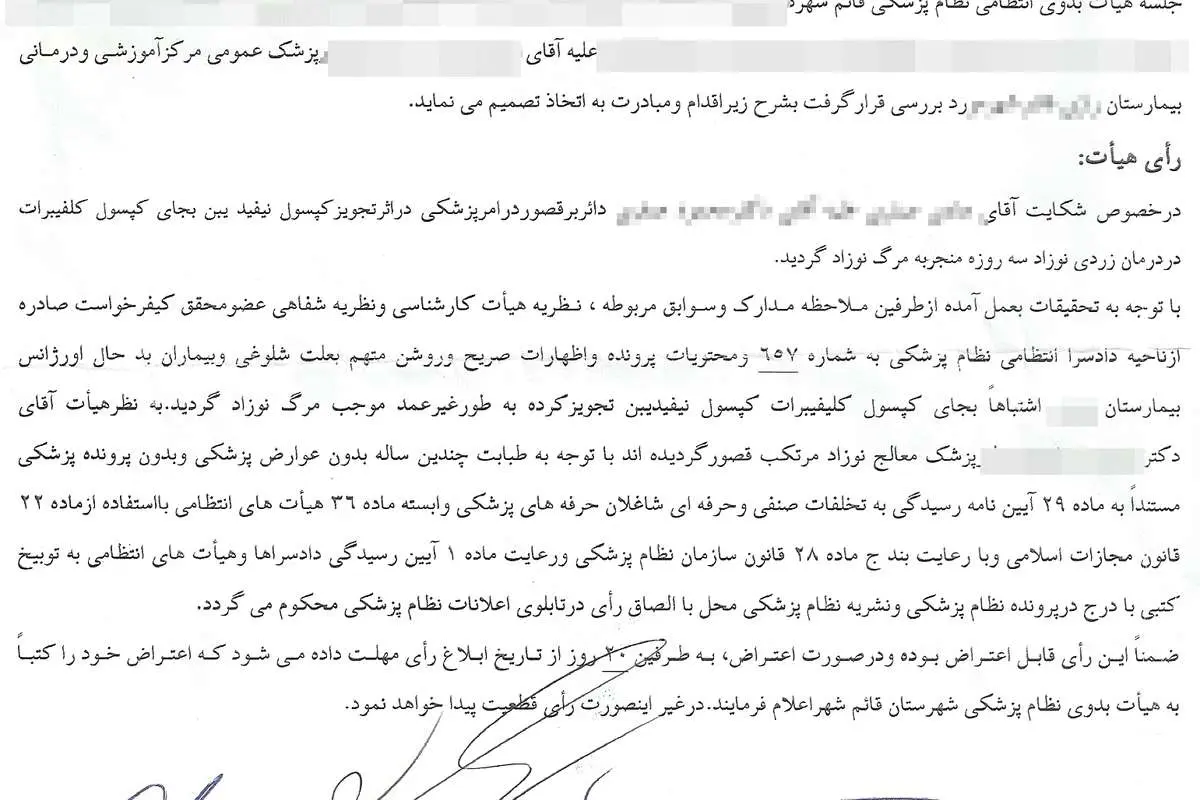 جلسه هیأت بدوی انتظامی نظام پزشکی قائم شهر
علیه آقای پزشک عمومی مرکزآموزشی ودرمانی
بیمارستان رد بررسی قرارگرفت بشرح زیراقدام ومبادرت به اتخاذ تصمیم می نماید.
رأی هیأت:
درخصوص شکایت آقای دائربرقصوردرامرپزشکی دراثرتجویزکپسول نیفید یبن بجای کپسول کلفیبرات
دردرمان زردی نوزاد سه روزه منجربه مرگ نوزاد گردید.
با توجه به تحقیقات بعمل آمده ازطرفین ملاحظه مدارک وسوابق مربوطه ، نظریه هیأت کارشناسی ونظریه شفاهی عضومحقق کیفرخواست صادره
ازناحیه دادسرا انتظامی نظام پزشکی به شماره ٦٥٧ ومحتویات پرونده واظهارات صریح وروشن متهم بعلت شلوغی وبیماران بد حال اورژانس
بیمارستان اشتباهاً بجای کپسول کلیفیبرات کپسول نیفیدیبن تجویزکرده به طورغیرعمد موجب مرگ نوزاد گردید.به نظرهیأت آقای
دکتر پزشک معالج نوزاد مرتکب قصورگردیده اند با توجه به طبابت چندین ساله بدون عوارض پزشکی وبدون پرونده پزشکی
مستنداً به ماده ٢٩ آیین نامه رسیدگی به تخلفات صنفی وحرفه ای شاغلان حرفه های پزشکی وابسته ماده ٣٦ هیأت های انتظامی بااستفاده ازماده ٢٢
قانون مجازات اسلامی وبا رعایت بند ج ماده ٢٨ قانون سازمان نظام پزشکی ورعایت ماده ١ آیین رسیدگی دادسراها وهیأت های انتظامی به توبیخ
کتبی با درج درپرونده نظام پزشکی ونشریه نظام پزشکی محل با الصاق رأی درتابلوی اعلانات نظام پزشکی محکوم می گردد.
ضمناً این رأی قابل اعتراض بوده ودرصورت اعتراض، به طرفین ٢٠ روز از تاریخ ابلاغ رأی مهلت داده می شود که اعتراض خود را کتباً
به هیأت بدوی نظام پزشکی شهرستان قائم شهراعلام فرمایند.درغیر اینصورت رأی قطعیت پیدا خواهد نمود.